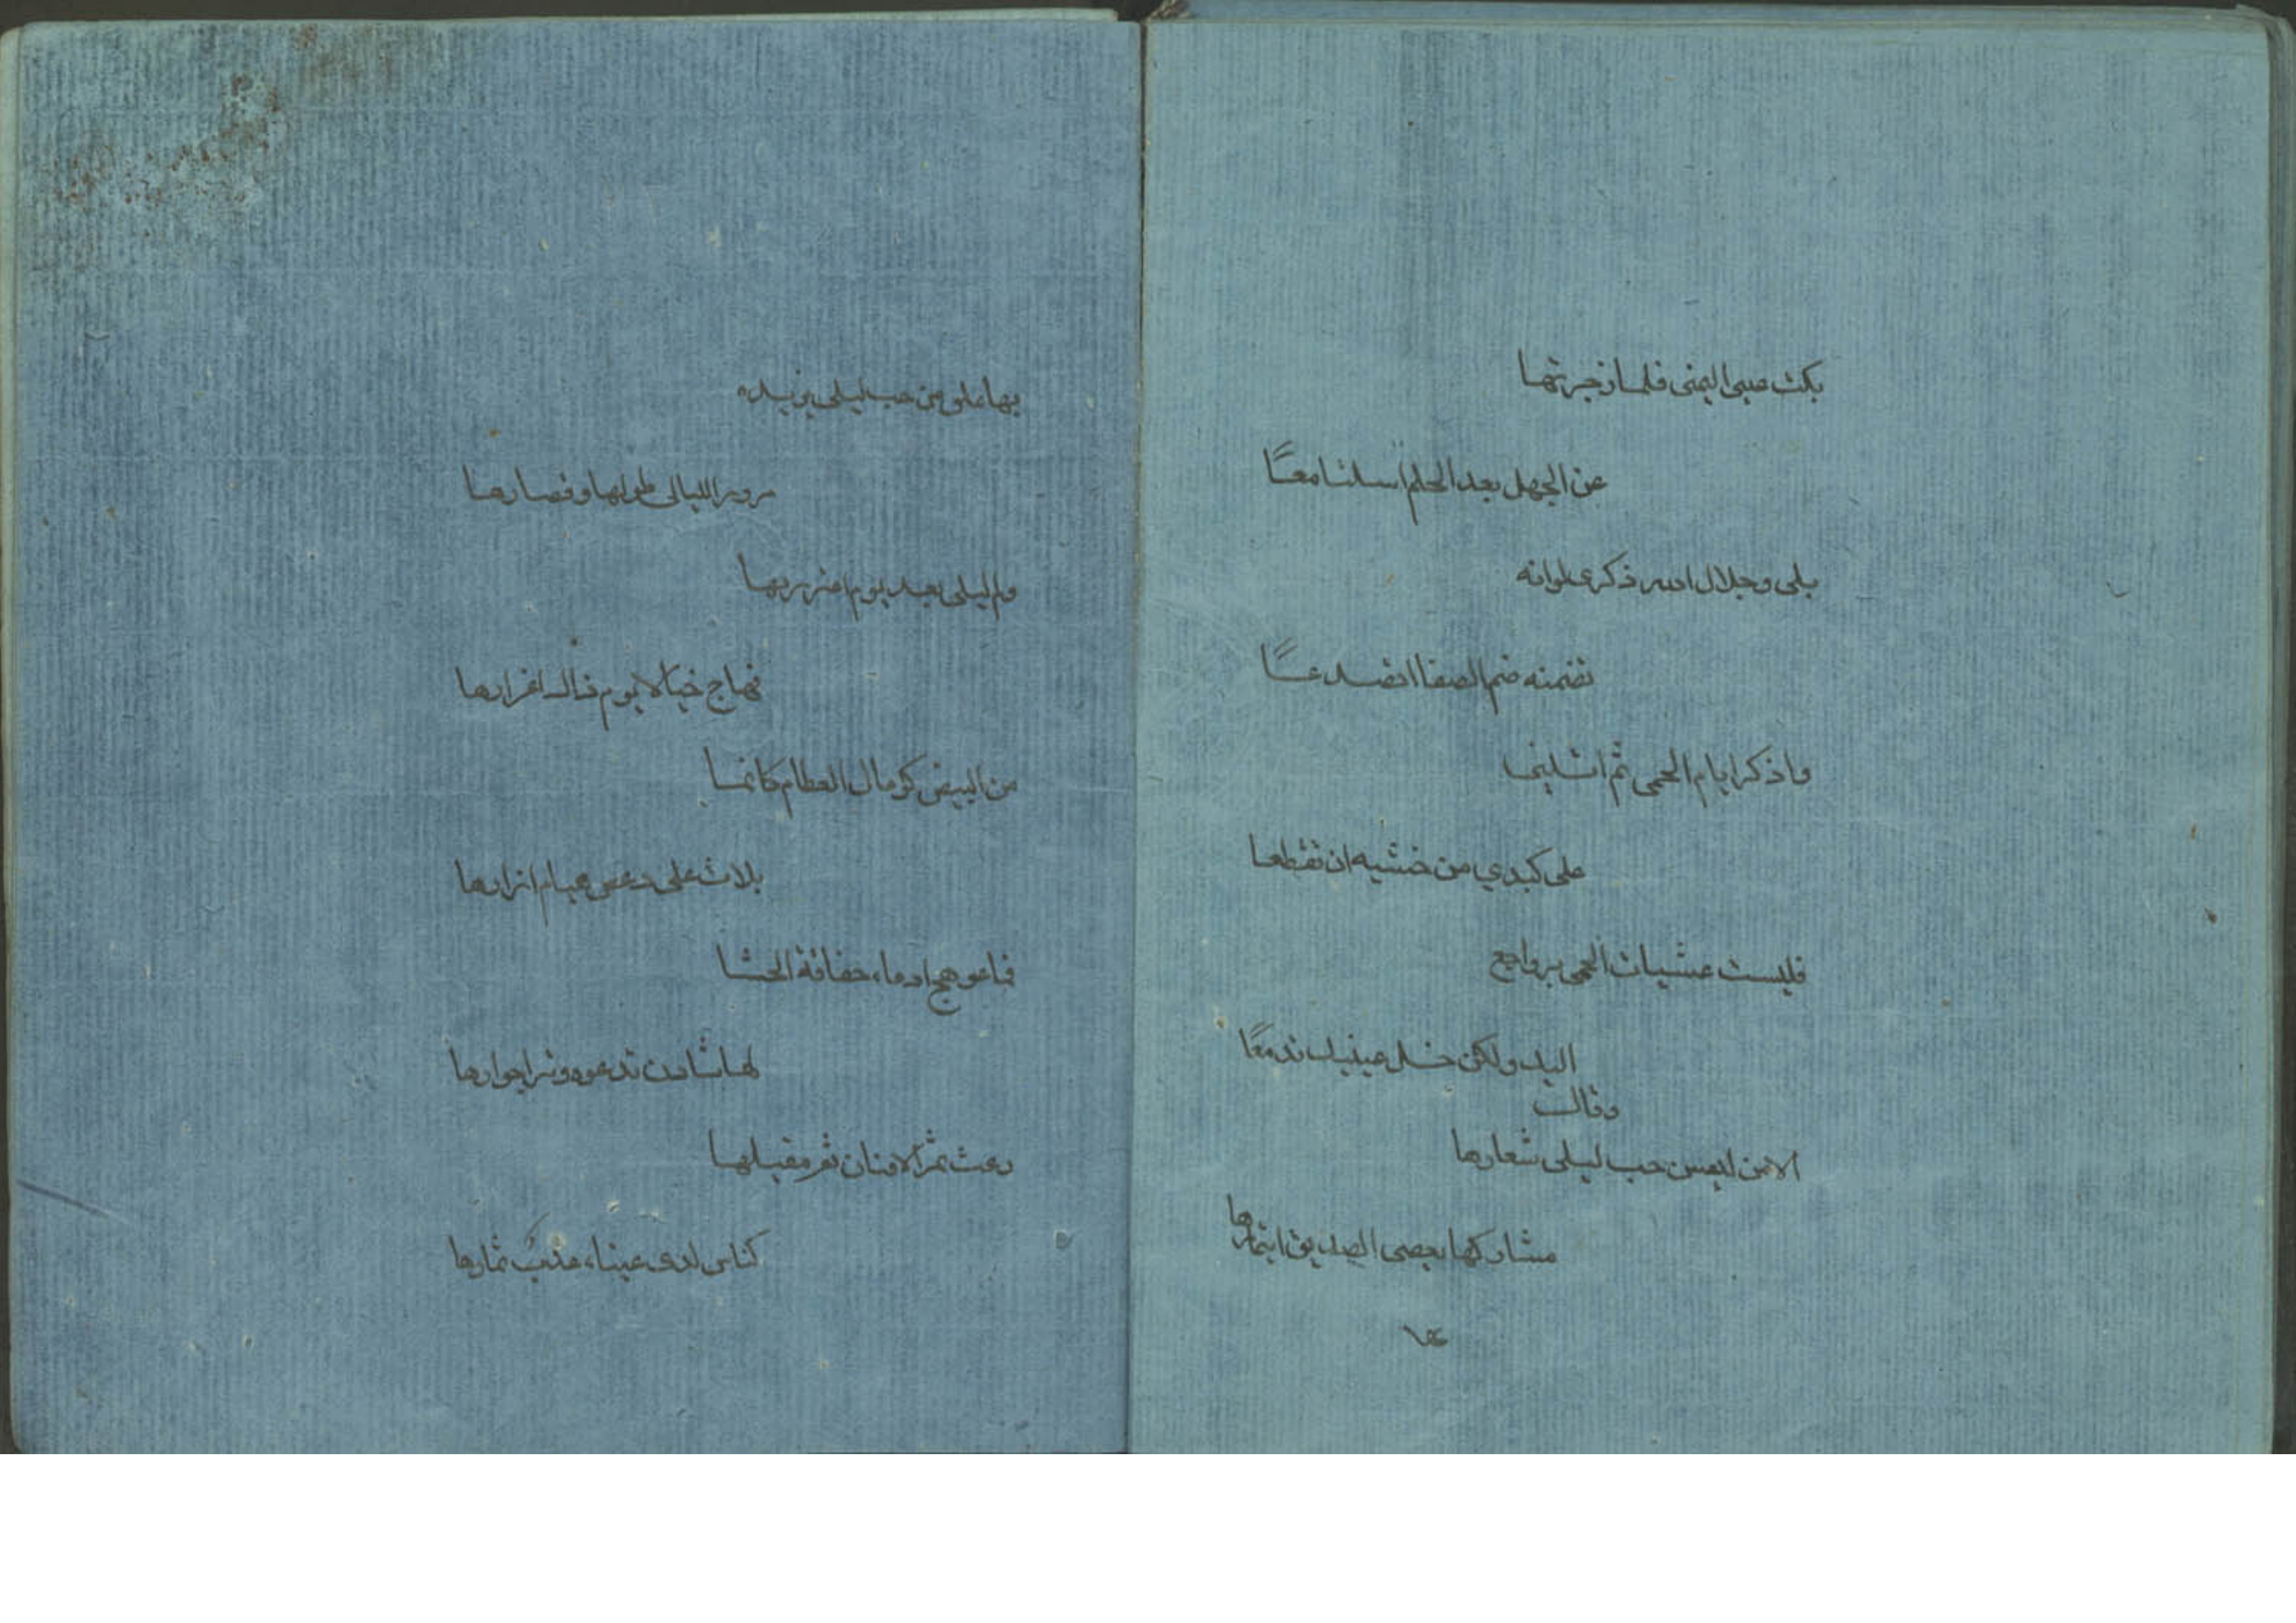 بكت عيني اليمنى فلما زجرتها
عن الجهل بعد الحلم اسبلتا معًا
بلى وجلال الله ذكرى لوانه
تضمنه صم الصفا اتصدعًا
واذكر ايام الحمى ثم انثنى
على كبدي من خشيه ان تقطعا
فليست عشيات الحمى برواجع
اليك ولكن خل عينيك تدمعًا
وقال
الا من لنفس حب ليلى شعارها
مشاركها بعصى الصديق ايتمارها
بها علق من حب ليلى يزيده
مرور الليالى طولها وقصارها
ولم ليلى بعد يوم
فهاج خبالا يوم ذاك اغرارها
من البيض كومال العظام كانما
بلاث على دعص هيام ازارها
فما عوهج ادماء خفاقة الحشا
لها شادن تدعوه وترا جوارها
رعت ثمر الافنان ثم مقيلها
كناس لدى عيناء عذبٌ ثمارها